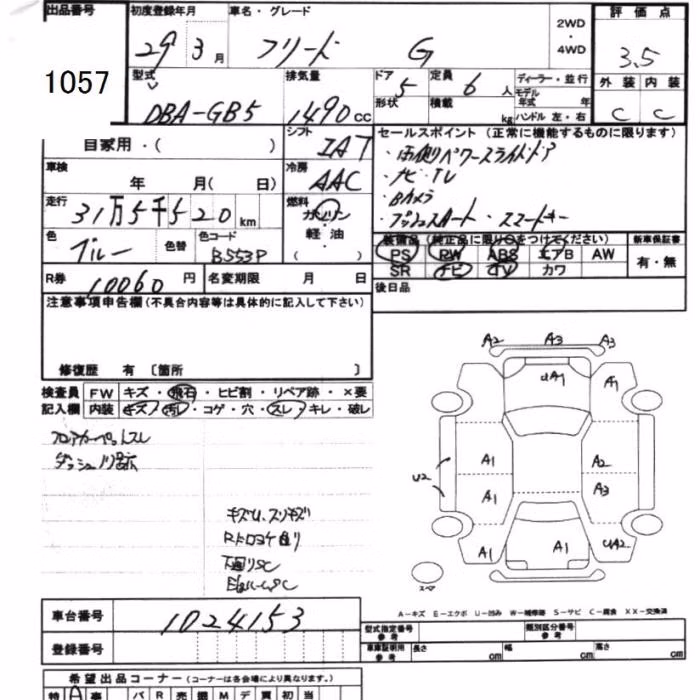 出品番号 初度登録年月 車名・グレード 2WD・4WD 評価点
1057 29年3月 フリード G 3.5
型式 排気量 ドア 5 定員 6人 ディーラー・並行 外装 内装
DBA-GB5 1490cc 形状 積載 kg モデル年式 年 ハンドル 左・右 C C
自家用・( ) シフト IAT セールスポイント(正常に機能するものに限ります)
車検 年 月( 日) 冷房 AAC ・両側パワースライドドア
・ナビ・TV
・Bカメラ
・プッシュスタート・スマートキー
走行 31万5千520km 燃料 ガソリン・軽油 ( )
色 ブルー 色替 色コード B553P
装備品(純正品に限り○をつけてください) 新車保証書
PS PW ABS エアB AW 有・無
SR ナビ TV カワ
R券 10060円 名変期限 月 日 後日品
注意事項申告欄(不具合内容等は具体的に記入して下さい)
修復歴 有 〔箇所 〕
検査員記入欄 FW キズ・飛石・ヒビ割・リペア跡・×要
内装 キズ・汚れ・コゲ・穴・スレ・キレ・破レ
フロアカーペットスレ
キズU、スリキズ
下回りSC
A2 A3 A3
UA1 A1
A1 A2
U2 A1 A3
A1 A1 UA2
スペア
A-キズ E-エクボ U-凹み W-補修跡 S-サビ C-腐食 XX-交換済
車台番号 1024153
登録番号
型式指定番号 参考 類別区分番号 参考
車庫証明用 参考 長さ cm 幅 cm 高さ cm
希望出品コーナー(コーナーは各会場により異なります。)